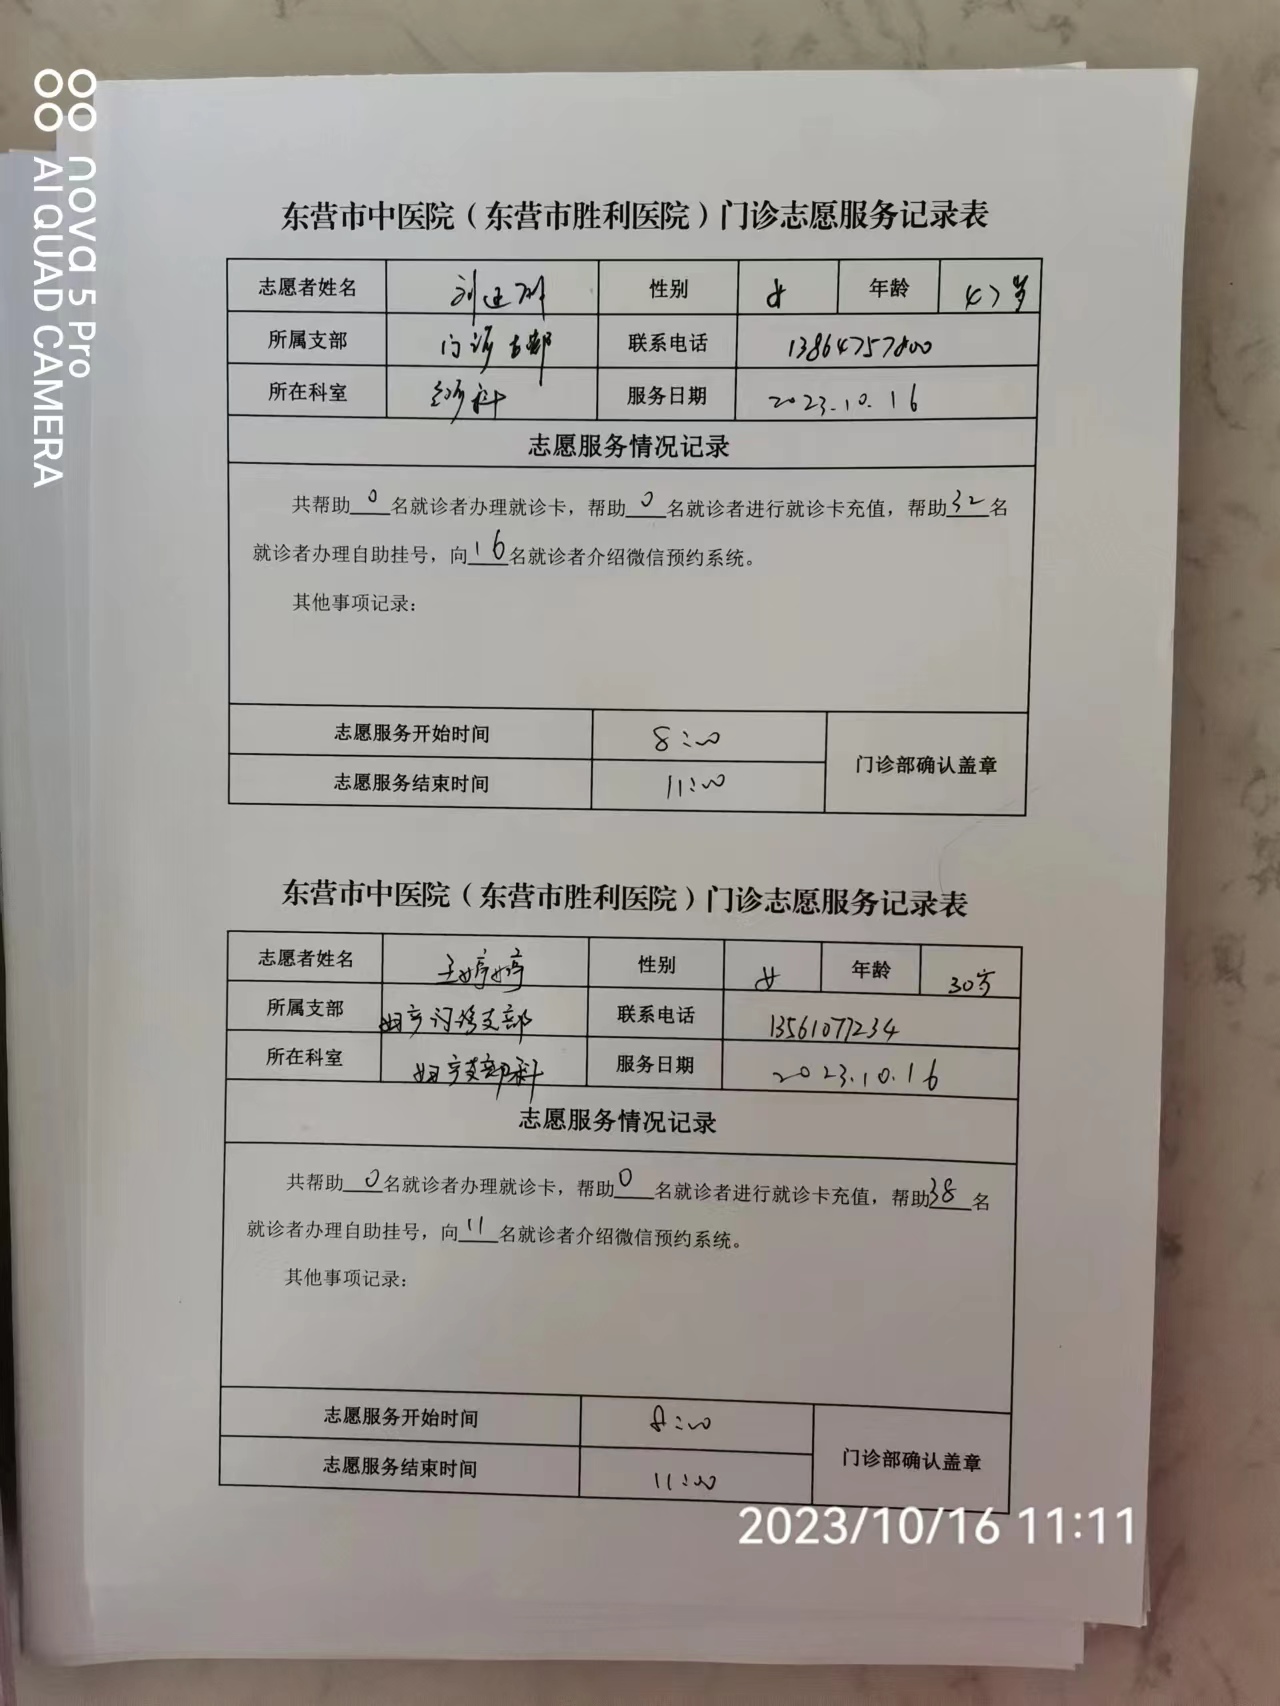 东营市中医院（东营市胜利医院）门诊志愿服务记录表
志愿者姓名 性别 女 年龄 47岁
所属支部 门诊支部 联系电话 13864757800
所在科室 服务日期 2023.10.16
志愿服务情况记录
共帮助0名就诊者办理就诊卡，帮助0名就诊者进行就诊卡充值，帮助32名
就诊者办理自助挂号，向16名就诊者介绍微信预约系统。
其他事项记录：
志愿服务开始时间 8:00
门诊部确认盖章
志愿服务结束时间 11:00
东营市中医院（东营市胜利医院）门诊志愿服务记录表
志愿者姓名 王婷婷 性别 女 年龄 30岁
所属支部 妇产门诊支部 联系电话 13561077234
所在科室 服务日期 2023.10.16
志愿服务情况记录
共帮助0名就诊者办理就诊卡，帮助0名就诊者进行就诊卡充值，帮助38名
就诊者办理自助挂号，向11名就诊者介绍微信预约系统。
其他事项记录：
志愿服务开始时间 8:00
门诊部确认盖章
志愿服务结束时间 11:00
2023/10/16 11:11
nova 5 Pro
AI QUAD CAMERA